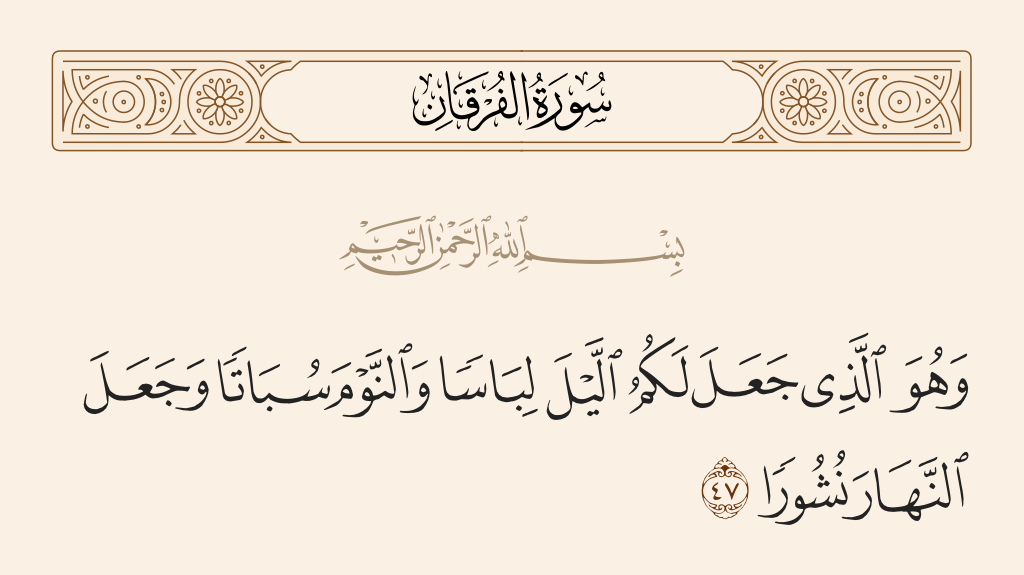 سُورَةُ الفُرْقَانِ
بِسْمِ ٱللَّهِ ٱلرَّحْمَٰنِ ٱلرَّحِيمِ
وَهُوَ ٱلَّذِى جَعَلَ لَكُمُ ٱلَّيْلَ لِبَاسًا وَٱلنَّوْمَ سُبَاتًا وَجَعَلَ
ٱلنَّهَارَ نُشُورًا ٤٧